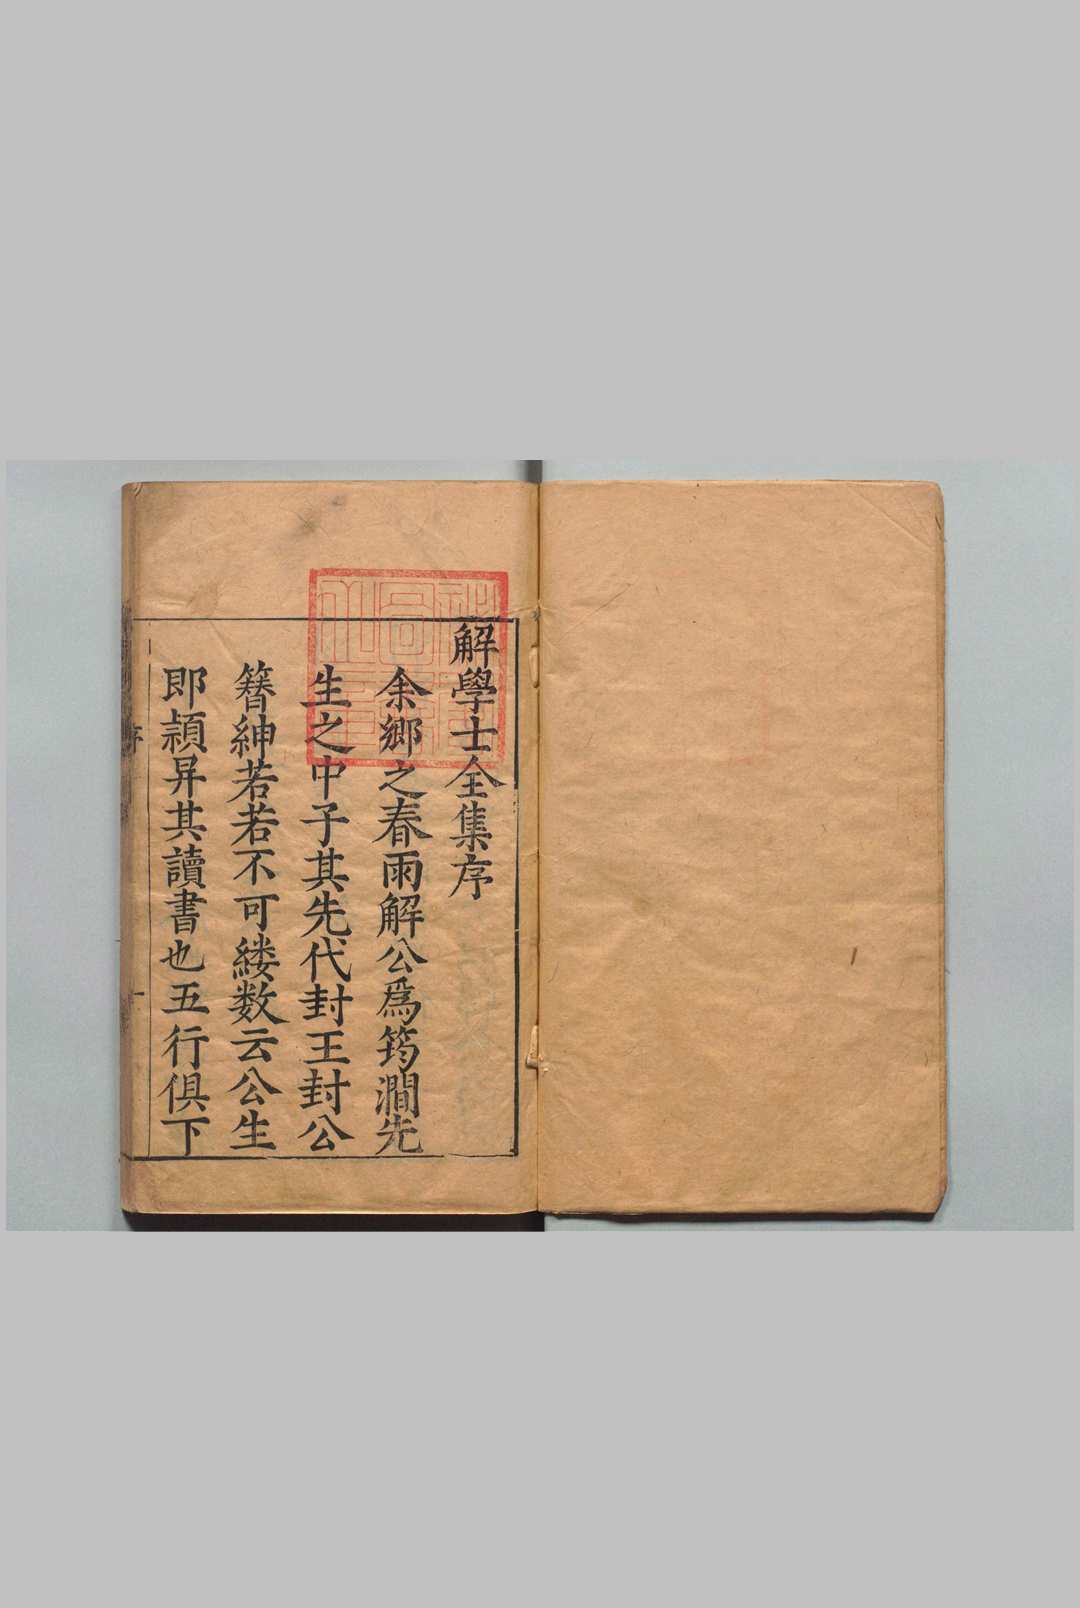 解學士全集序
余鄉之春雨解公爲筠澗先
生之中子其先代封王封公
簪紳若若不可縷数云公生
即頴昇其讀書也五行俱下
序
一